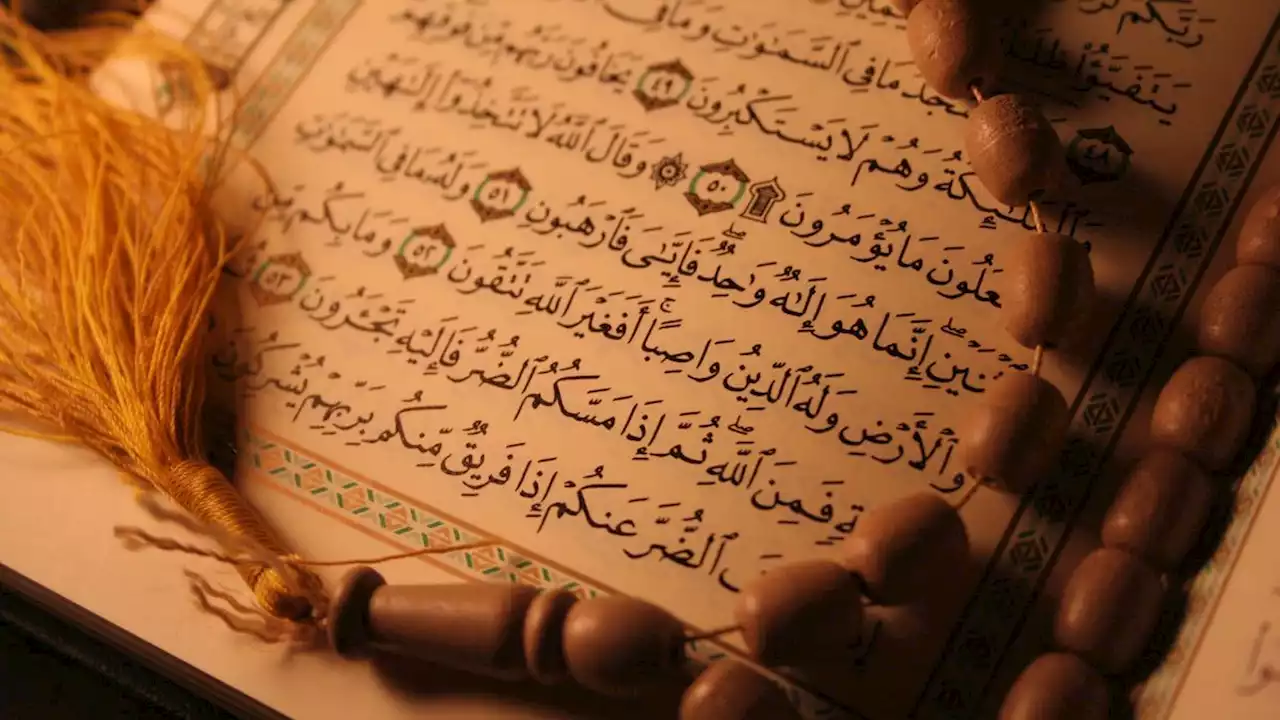 رَبَّكُمْ
يَتَفَيَّؤُا۟ ظِلَٰلُهُۥ
٤٨ مَا فِى ٱلسَّمَٰوَٰتِ وَمَا فِى
وَهُمْ لَا يَسْتَكْبِرُونَ ٤٩ يَخَافُونَ رَبَّهُم مِّن فَوْقِهِمْ
مَا يُؤْمَرُونَ ۩ ٥٠ ۞ وَقَالَ ٱللَّهُ لَا تَتَّخِذُوٓا۟ إِلَٰهَيْنِ
إِنَّمَا هُوَ إِلَٰهٌ وَٰحِدٌ ۖ فَإِيَّٰىَ فَٱرْهَبُونِ ٥١ وَلَهُۥ مَا فِى ٱلسَّمَٰوَٰتِ
وَٱلْأَرْضِ وَلَهُ ٱلدِّينُ وَاصِبًا ۚ أَفَغَيْرَ ٱللَّهِ تَتَّقُونَ ٥٢ وَمَا بِكُم مِّن
فَمِنَ ٱللَّهِ ۖ ثُمَّ إِذَا مَسَّكُمُ ٱلضُّرُّ فَإِلَيْهِ تَجْـَٔرُونَ ٥٣
ٱلضُّرَّ عَنكُمْ إِذَا فَرِيقٌ مِّنكُم بِرَبِّهِمْ يُشْرِكُونَ